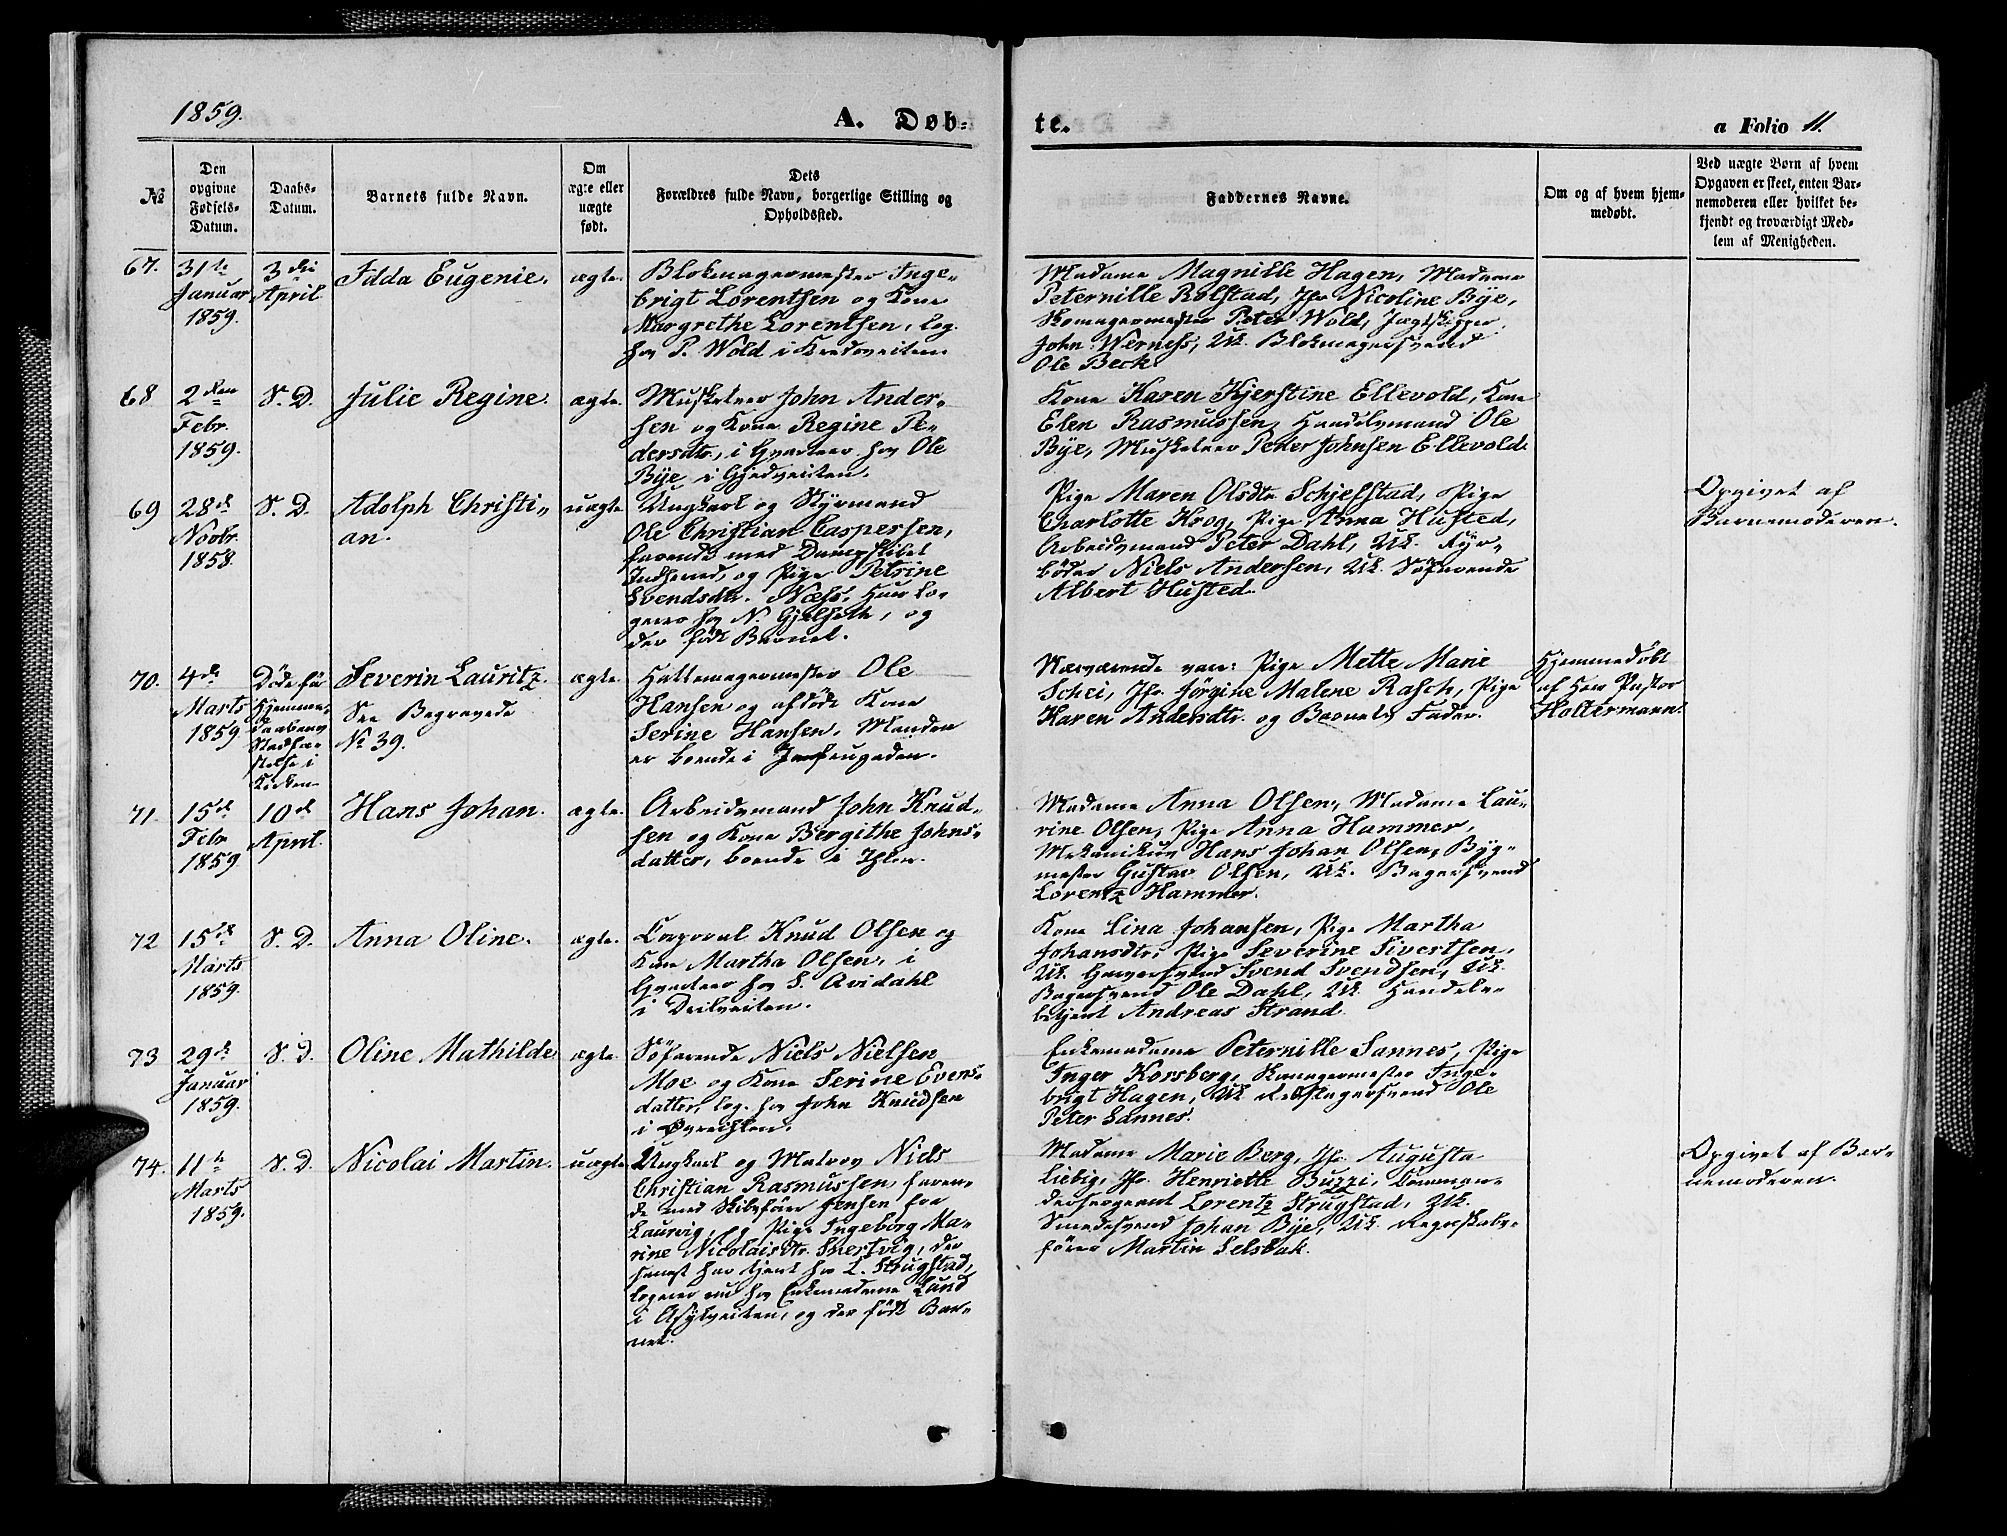 1859.
A. Døb-
te.
a Folio 11.
No
Den
opgivne
Fødsels-
Datum.
Daabs-
Datum.
Barnets fulde Navn.
Om
ægte eller
uægte
født.
Dets
Forældres fulde Navn, borgerlige Stilling og
Opholdssted.
Faddernes Navne.
Om og af hvem hjem-
medøbt.
Ved uægte Børn af hvem
Opgaven er skeet, enten Bar-
nemoderen eller hvilket be-
kjendt og troværdigt Med-
lem af Menigheden.
67.
31te
Januar
1859.
3die
April
Idda Eugenie.
ægte.
Blokmagermester Inge-
brigt Lorentsen og Kone
Margrethe Lorentsen, log.
hos P. Wold i
Madame Magnille Hagen, Madame
Peternille Rolstad, Jfr Nicoline Bÿe,
Skomagermester Peter Wold, Jægtskipper
John Werness, Uk. Blokmagersvend
Ole Beck.
68
2den
Febr.
1859.
S. D.
Julie Regine.
ægte.
Musketeer John Ander-
sen og Kone Regine Pe-
dersdtr., i Qvarteer hos Ole
Bÿe i Gjedveiten.
Kone Karen Kjerstine Ellevold, Kone
Elen Rasmussen, Handelsmand Ole
Bÿe, Musketeer Peder Johnsen Ellevold.
69
28de
Novbr.
1858.
S. D.
Adolph Christi-
an.
uægte
Ungkarl og Styrmand
Ole Christian Caspersen,
farende med Dampskibet
Indherred, og Pige Petrine
Svendsdtr. Næss. Hun lo-
gerer hos N. Gjelseth, og
der født Barnet.
Pige Maren Olsdtr Schjefstad, Pige
Charlotte Krog, Pige Anna Husted,
Arbeidsmand Peter Dahl, Uk. Fyr-
bøder Niels Andersen, Uk. Søfarende
Albert Husted.
Opgivet af
Barnemoderen.
70.
4de
Marts
1859
Døde før
Hjemme-
daabens
Stadfæ-
stelse i
Kirken.
Severin Lauritz.
See Begravede
No 39.
ægte.
Hattemagermester Ole
Hansen og afdøde Kone
Serine Hansen. Manden
er boende i
Nærværende vare: Pige Mette Marie
Schei, Jfr. Jørgine Malene Rasch, Pige
Karen Andersdtr. og Barnets Fader.
Hjemmedøbt
af Herr Pastor
Holtermann.
71.
15de
Febr
1859
10de
April.
Hans Johan.
ægte.
Arbeidsmand John Knud-
sen og Kone Bergithe Johns-
datter, boende i Ihlen.
Madame Anna Olsen, Madame Lau-
rine Olsen, Pige Anna Hammer,
Mekanikus Hans Johan Olsen, Byg-
mester Gustav Olsen, Uk. Bagersvend
Lorentz Hammer.
72
15de
Marts
1859.
S. D.
Anna Oline.
ægte.
Corporal Knud Olsen og
Kone Martha Olsen, i
Qvarteer hos S. Avidahl
i Veitveiten.
Kone Lina Johansen, Pige Martha
Johansdtr., Pige Severine Sivertsen,
Uk. Garversvend Svend Svendsen, Uk.
Bagersvend Ole Dahl, Uk Handels-
betjent Andreas Strand.
73
29de
Januar
1859.
S. D.
Oline Mathilde
ægte.
Søfarende Niels Nielsen
Moe og Kone Serine Evens-
datter, log. hos John Knudsen
i Øvreihlen.
Enkemadame Peternille Sannes, Pige
Inger Korsberg, Skomagermester Inge-
brigt Hagen, Uk Rebslagersvend Ole
Peter Sannes.
74.
11te
Marts
1859.
S. D.
Nicolai Martin.
uægte
Ungkarl og Matros Niels
Christian Rasmussen, faren-
de med Skibsfører Jensen fra
Laurvig, og Pige Ingeborg Ma-
rine Nicolaisdtr. Snertvig, der
senest har tjent hos L. Strugstad,
logerer nu hos Enkemadame Lund
i Asylveiten, og der født Bar-
net.
Madame Marie Berg, Jfr. Augusta
Liebig, Jfr. Henriette Buzzi, Comman-
deersergeant Lorentz Strugstad, Uk.
Smedesvend Johan Bÿe, Uk. Regnskabs-
fører Martin Selsbak.
Opgivet af Bar-
nemoderen.